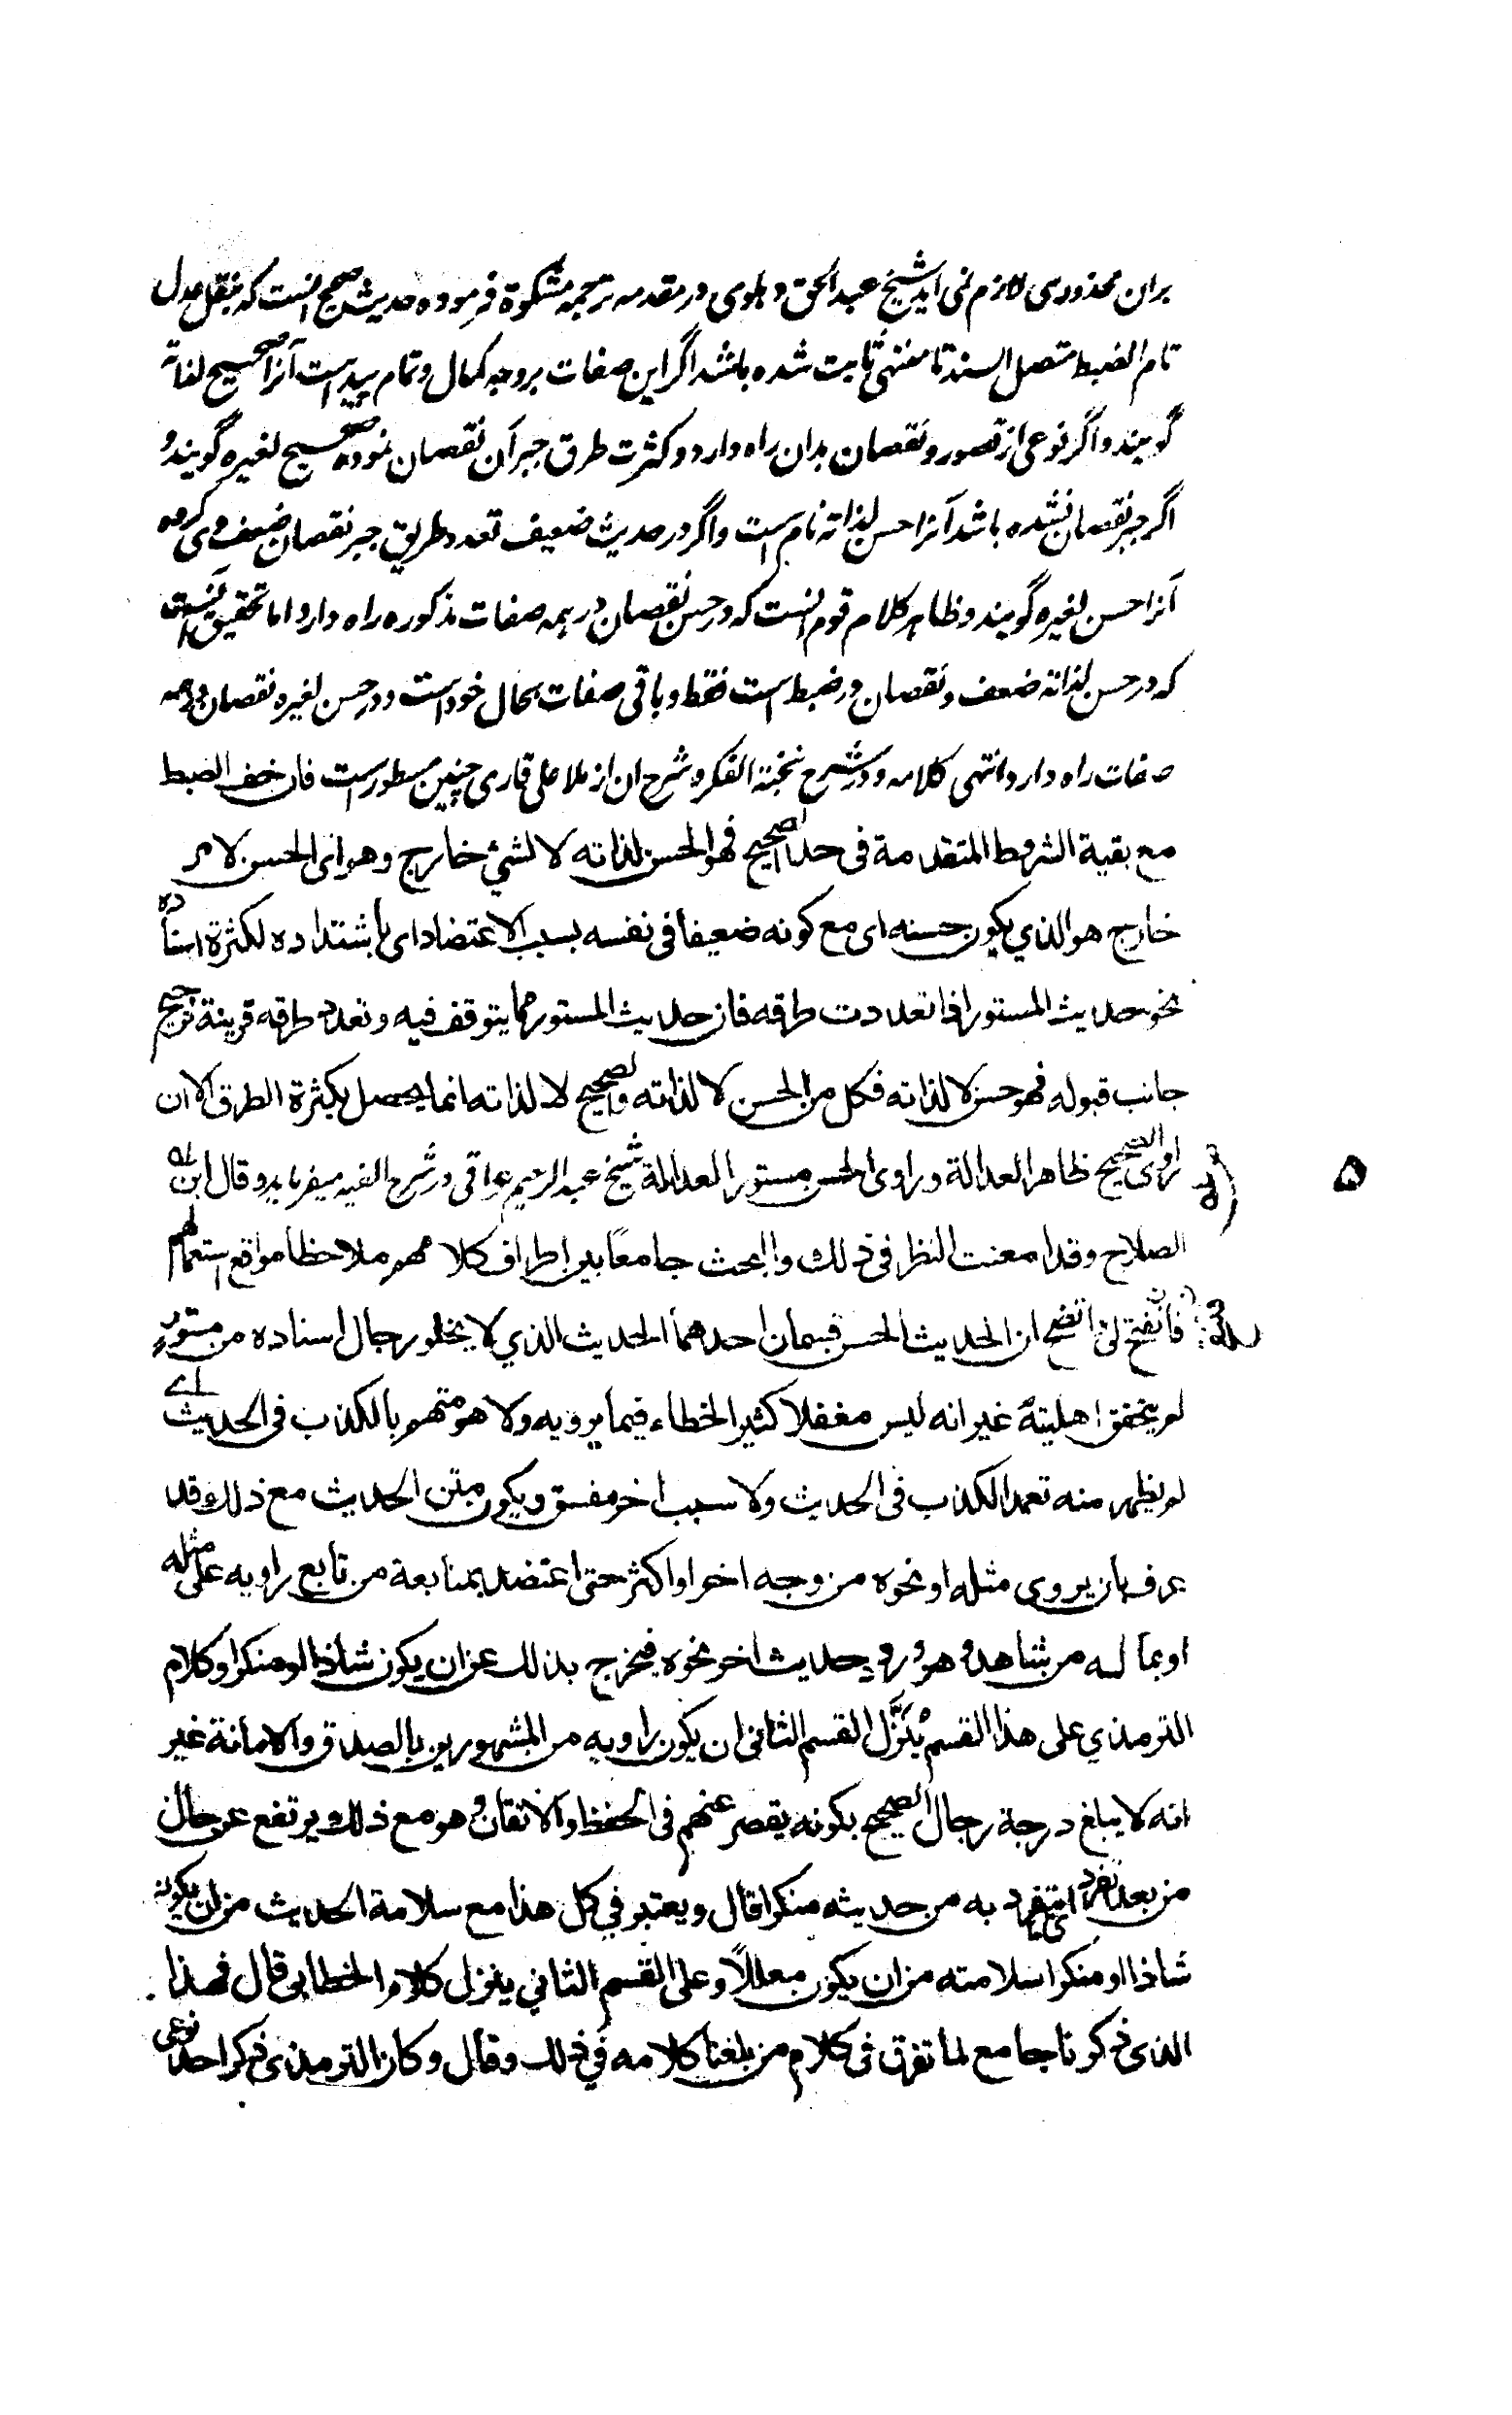 بران محذوری لازم نمی اید شیخ عبد الحق دهلوی در مقدمه ترجمه مشکوة فرموده حدیث صحیح انست که بنقل عدل
تام الضبط متصل السند تا منتهی ثابت شده باشد اگر این صفات بروجه کمال و تمام پیداست آنرا صحیح لذاته
گویند و اگر نوعی از قصور و نقصان بدان راه دارد و کثرت طرق جبر آن نقصان نموده صحیح لغیره گویند و
اگر جبر نقصان نشده باشد آنرا حسن لذاته نام است و اگر در حدیث ضعیف تعدد طریق جبر نقصان ضعف وی کرده
آنرا حسن لغیره گویند و ظاهر کلام قوم انست که در حسن نقصان در همه صفات مذکوره راه دارد اما تحقیق آنست
که در حسن لذاته ضعف و نقصان در ضبط است فقط و باقی صفات بحال خود است و در حسن لغیره نقصان در همه
صفات راه دارد انتهی کلامه و در شرح نخبة الفکر و شرح ان از ملا علی قاری چنین مسطور است فان خف الضبط
مع بقية الشروط المتقدمة فى حد الصحيح فهو الحسن لذاته لا لشئ خارج وهو اى الحسن لامر
خارج هو الذي يكون حسنه اى مع كونه ضعيفا فى نفسه بسبب الاعتضاد اى باشتداده لكثرة اسناده
نحو حديث المستور اذا تعددت طرقه فان حديث المستور مما يتوقف فيه وتعدد طرقه قرينة ترجح
جانب قبوله فهو حسن لا لذاته فكل من الحسن لا لذاته والصحيح لا لذاته انما يحصل بكثرة الطرق الا ان
راوى الصحيح ظاهر العدالة وراوى الحسن مستور العدالة شیخ عبد الرحیم عراقی در شرح الفیه میفرماید وقال ابن
الصلاح وقد امعنت النظر فى ذلك والبحث جامعًا بين اطراف كلامهم ملاحظا مواقع استعمالهم
فاتضح ان الحديث الحسن قسمان احدهما الحديث الذي لا يخلو رجال اسناده من مستورٍ
لم يتحقق اهليته غير انه ليس مغفلا كثير الخطاء فيما يرويه ولا هو متهم بالكذب فى الحديث اے
لم يظهر منه تعمد الكذب فى الحديث ولا سبب اخر مفسق ويكون متن الحديث مع ذلك قد
عرف بان يروى مثله او نحوه من وجه اخر او اكثر حتى اعتضد بمتابعة من تابع راويه على مثله
او بما له من شاهد وهو ورود حديث اخر نحوه فيخرج بذلك عن ان يكون شاذا او منكرا وكلام
الترمذي على هذا القسم يُنَزَّل القسم الثانى ان يكون راويه من المشهورين بالصدق والامانة غير
انه لا يبلغ درجة رجال الصحيح بكونه يقصر عنهم فى الحفظ والاتقان وهو مع ذلك يرتفع عن حال
من يعد تفرد به من حديثه منكرا قال ويعتبر في كل هذا مع سلامة الحديث من ان يكون
شاذا او منكرا سلامته من ان يكون معللًا وعلى القسم الثاني ينزل كلام الخطابى قال فهذا
الذى ذكرنا جامع لما تفرق فى كلام من بلغنا كلامه في ذلك وقال وكان الترمذى ذكر احد نوعى
۵